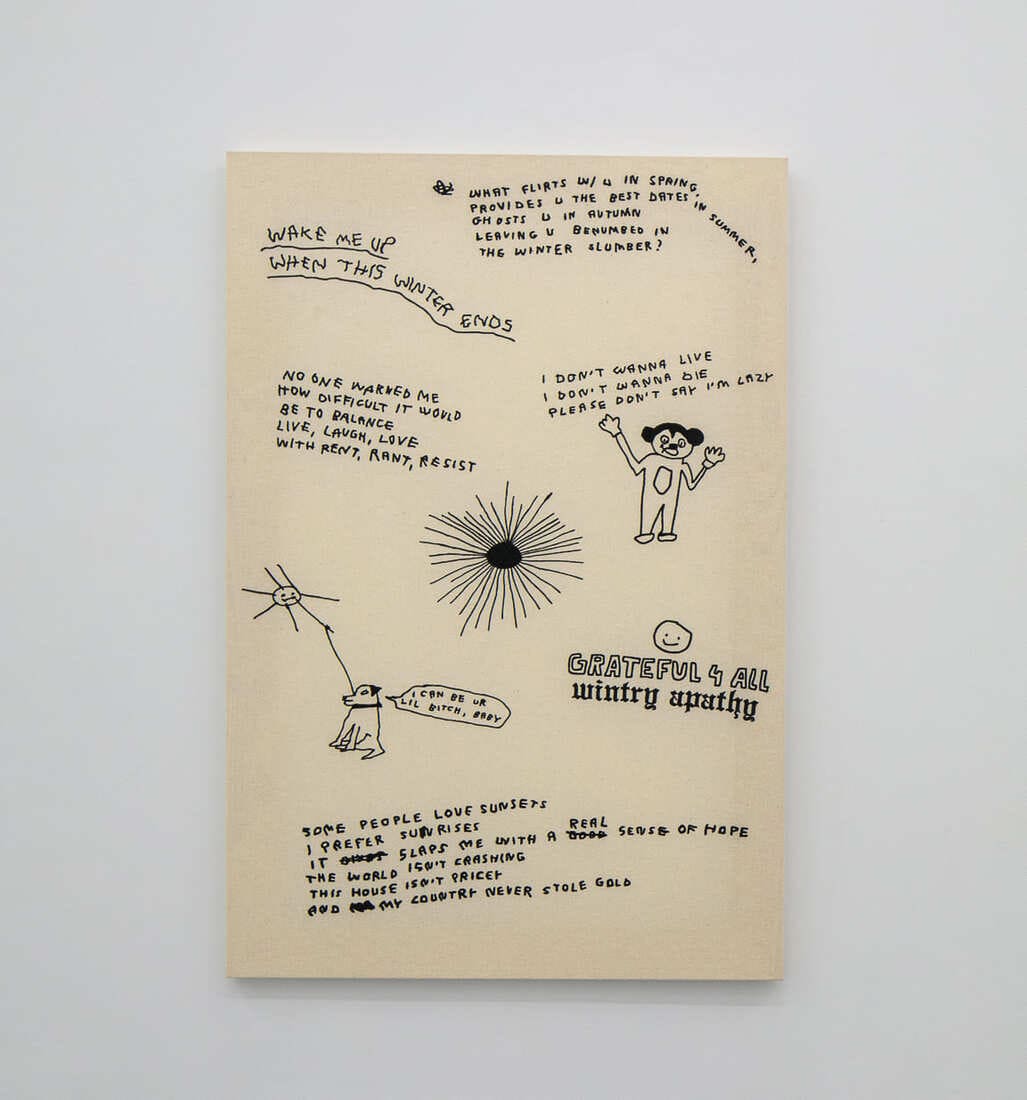 WHAT FLIRTS W/ U IN SPRING,
PROVIDES U THE BEST DATES IN SUMMER,
GHOSTS U IN AUTUMN
LEAVING U BENUMBED IN
THE WINTER SLUMBER?
WAKE ME UP
WHEN THIS WINTER ENDS
I DON'T WANNA LIVE
I DON'T WANNA DIE
PLEASE DON'T SAY I'M LAZY
NO ONE WARNED ME
HOW DIFFICULT IT WOULD
BE TO BALANCE
LIVE, LAUGH, LOVE
WITH RENT, RANT, RESIST
GRATEFUL 4 ALL
wintry apathy
I CAN BE UR
LIL BITCH, BABY
SOME PEOPLE LOVE SUNSETS
I PREFER SUNRISES
IT SLAPS ME WITH A REAL SENSE OF HOPE
THE WORLD ISN'T CRASHING
THIS HOUSE ISN'T PRICEY
AND MY COUNTRY NEVER STOLE GOLD